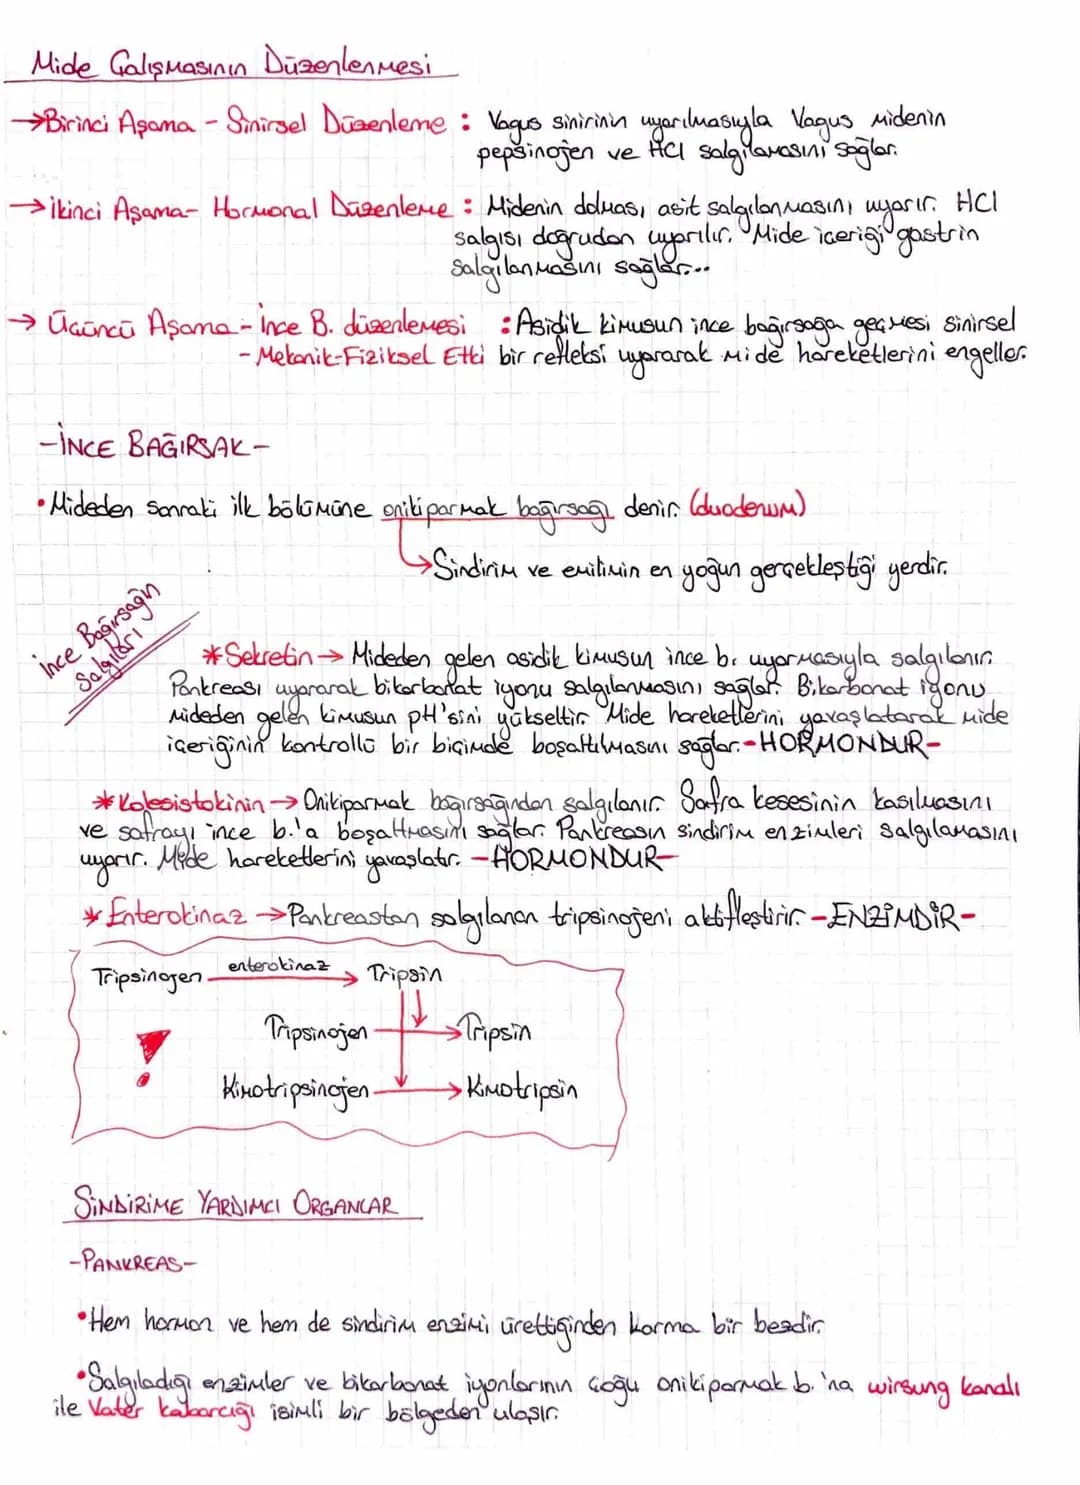 Mide Çalışmasının Düzenlenmesi
→Birinci Aşama - Sinirsel Düzenleme : Vagus sinirinin uyarılmasıyla Vagus midenin
pepsinojen ve HCl salgılamasını sağlar.
→İkinci Aşama- Hormonal Düzenleme : Midenin dolması, asit salgılanmasını uyarır. HCl
salgısı doğrudan uyarılır. Mide içeriği gastrin
salgılanmasını sağlar...
→ Üçüncü Aşama - İnce B. düzenlemesi : Asidik kimusun ince bağırsağa geçmesi sinirsel
- Mekanik-Fiziksel Etki bir refleksi uyararak mide hareketlerini engeller.
-İNCE BAĞIRSAK-
•Mideden sonraki ilk bölümüne onikiparmak bağırsağı denir. (duodenum)
→Sindirim ve emilimin en yoğun gerçekleştiği yerdir.
İnce Bağırsağın
Salgıları
*Sekretin→ Mideden gelen asidik kimusun ince b. uyarmasıyla salgılanır.
Pankreası uyararak bikarbonat iyonu salgılanmasını sağlar. Bikarbonat iyonu
mideden gelen kimusun pH'sini yükseltir. Mide hareketlerini yavaşlatarak mide
içeriğinin kontrollü bir biçimde boşaltılmasını sağlar.-HORMONDUR-
*Kolesistokinin→ Onikiparmak bağırsağından salgılanır. Safra kesesinin kasılmasını
ve safrayı ince b.'a boşaltmasını sağlar. Pankreasın sindirim enzimleri salgılamasını
uyarır. Mide hareketlerini yavaşlatır. -HORMONDUR-
*Enterokinaz →Pankreastan salgılanan tripsinojeni aktifleştirir. -ENZİMDİR-
Tripsinojen enterokinaz → Tripsin
Tripsinojen → Tripsin
Kimotripsinojen → Kimotripsin
SİNDİRİME YARDIMCI ORGANLAR
-PANKREAS-
•Hem hormon ve hem de sindirim enzimi ürettiğinden karma bir bezdir.
•Salgıladığı enzimler ve bikarbonat iyonlarının çoğu onikiparmak b.'na wirsung kanalı
ile Vater kabarcığı isimli bir bölgeden ulaşır.